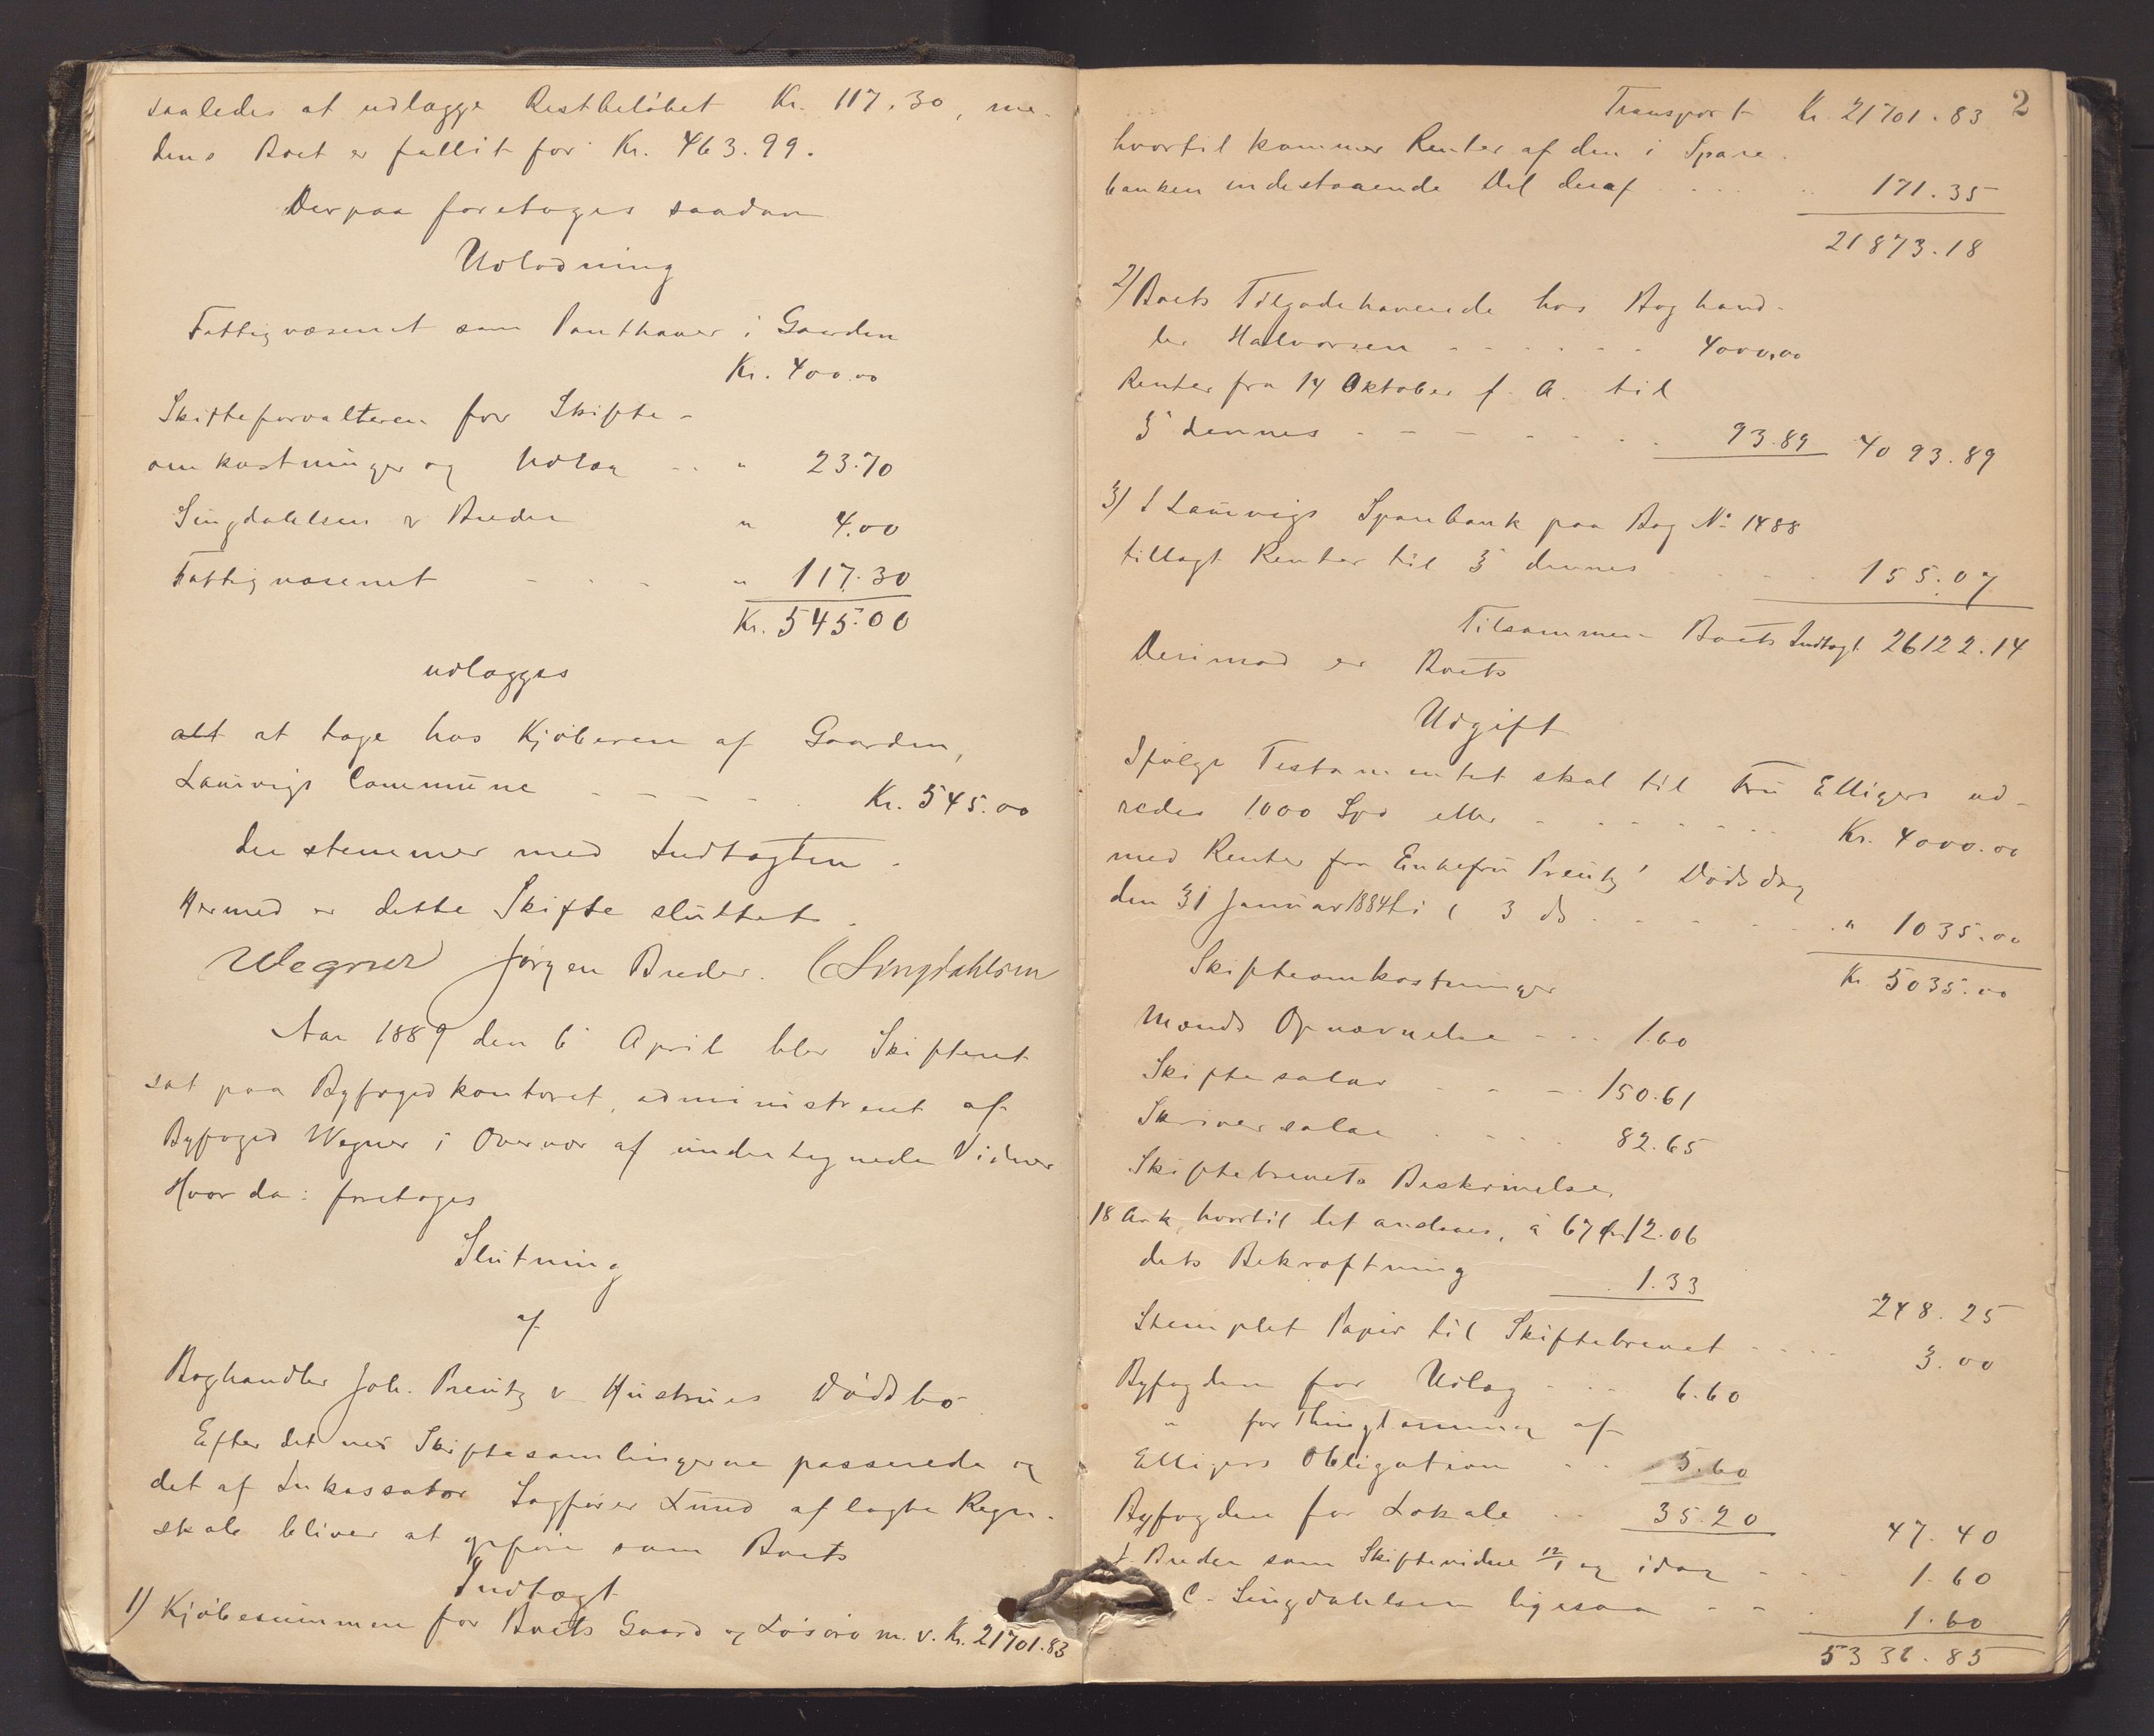 saaledes at udlægge Restbeløbet Kr. 117.30, me-
dens Boet er fallit for Kr. 463.99.
Derpaa foretoges saadan
Udlodning
Fattigvæsenet som Panthaver i Gaarden
Kr. 400.00
Skifteforvalteren for Skifte-
omkostninger og Udlæg " 23.70
Singdahlsen & Breder " 4.00
Fattigvæsenet " 117.30
Kr. 545.00
udlægges
alt at tage hos Kjøberen af Gaarden,
Laurvigs Commune Kr. 545.00
der stemmer med Indtægten.
Hermed er dette Skifte sluttet.
Wegner Jørgen Breder. C Singdahlsen
Aar 1889 den 6 April blev Skifteret
sat paa Byfogedkontoret, administreret af
Byfoged Wegner i Overvær af undertegnede Vidner
Hvor da: foretoges
Slutning
af
Boghandler Joh. Preutz & Hustrues Dødsbo
Efter det ved Skiftesamlingerne passerede og
det af Inkassator Sagfører Lund aflagte Regn-
skab bliver at opføre som Boets
Indtægt
1) Kjøbesummen for Boets Gaard og Løsøre m. v. Kr. 21701.83
2
Transport Kr. 21701.83
hvortil kommer Renter af den i Spare-
banken indestaaende Del deraf 171.35
21873.18
2) Boets Tilgodehavende hos Boghand-
ler Halvorsen 4000,00
Renter fra 14 Oktober f. A. til
3 dennes 93.89 4093.89
3) I Laurvigs Sparebank paa Bog No 1488
tillagt Renter til 3 dennes 155.07
Tilsammen Boets Indtægt 26122.14
Derimod er Boets
Udgift
Ifølge Testamentet skal til Fru Elligers ud-
redes 1000 Spd eller Kr. 4000.00
med Renter fra Enkefru Preutz' Dødsdag
den 31 Januar 1884 til 3 ds " 1035.00
Kr 5035.00
Skifteomkostninger
Mænds Opnævnelse 1.60
Skiftesalar 150.61
Skriversalær 82.65
Skiftebrevets Beskrivelse,
18 Ark, hvortil det ansees, à 67 Ør 12.06
dets Bekræftning 1.33
248.25
Stemplet Papir til Skiftebrevet 3.00
Byfogden for Udlæg 6.60
" for Thinglæsning af
Elligers Obligation 5.60
Byfogden for Lokale 35.20
47.40
J. Breder som Skiftevidne 12/1 og idag 1.60
C. Singdahlsen ligesaa 1.60
5336.85